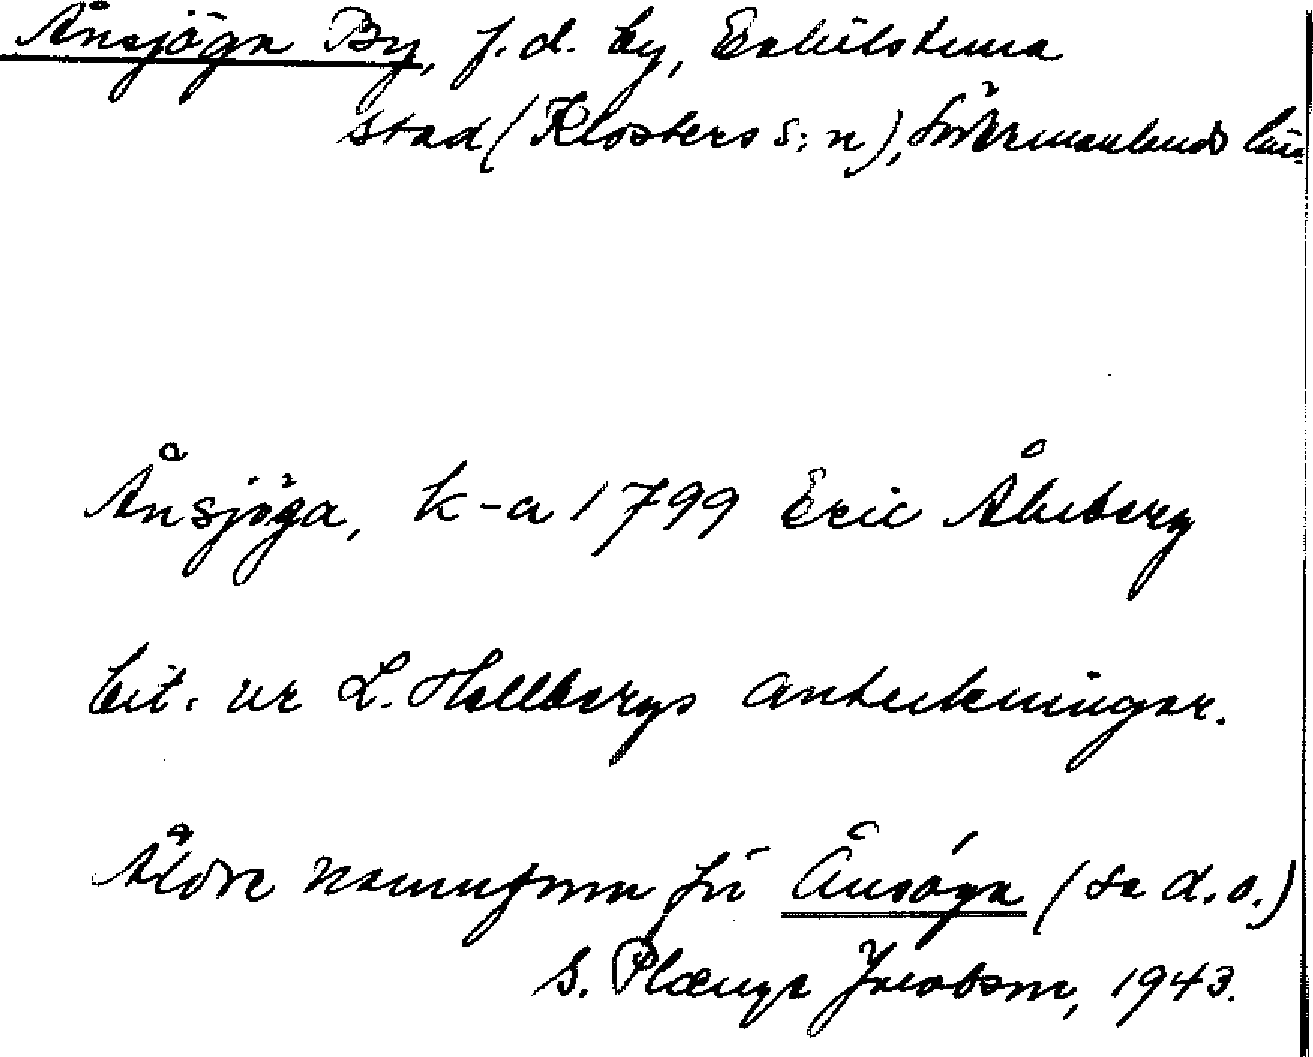 Ånsjöga By, f.d. by, Eskilstuna
stad (Klosters s:n), Södermanlands län
Ånsjöga, k-a 1799 Eric Åkeberg
cit. ur L. Hallbergs anteckningar.
Äldre namnform för Ånsöga (se d.o.)
S. Plænge Jacobson, 1943.